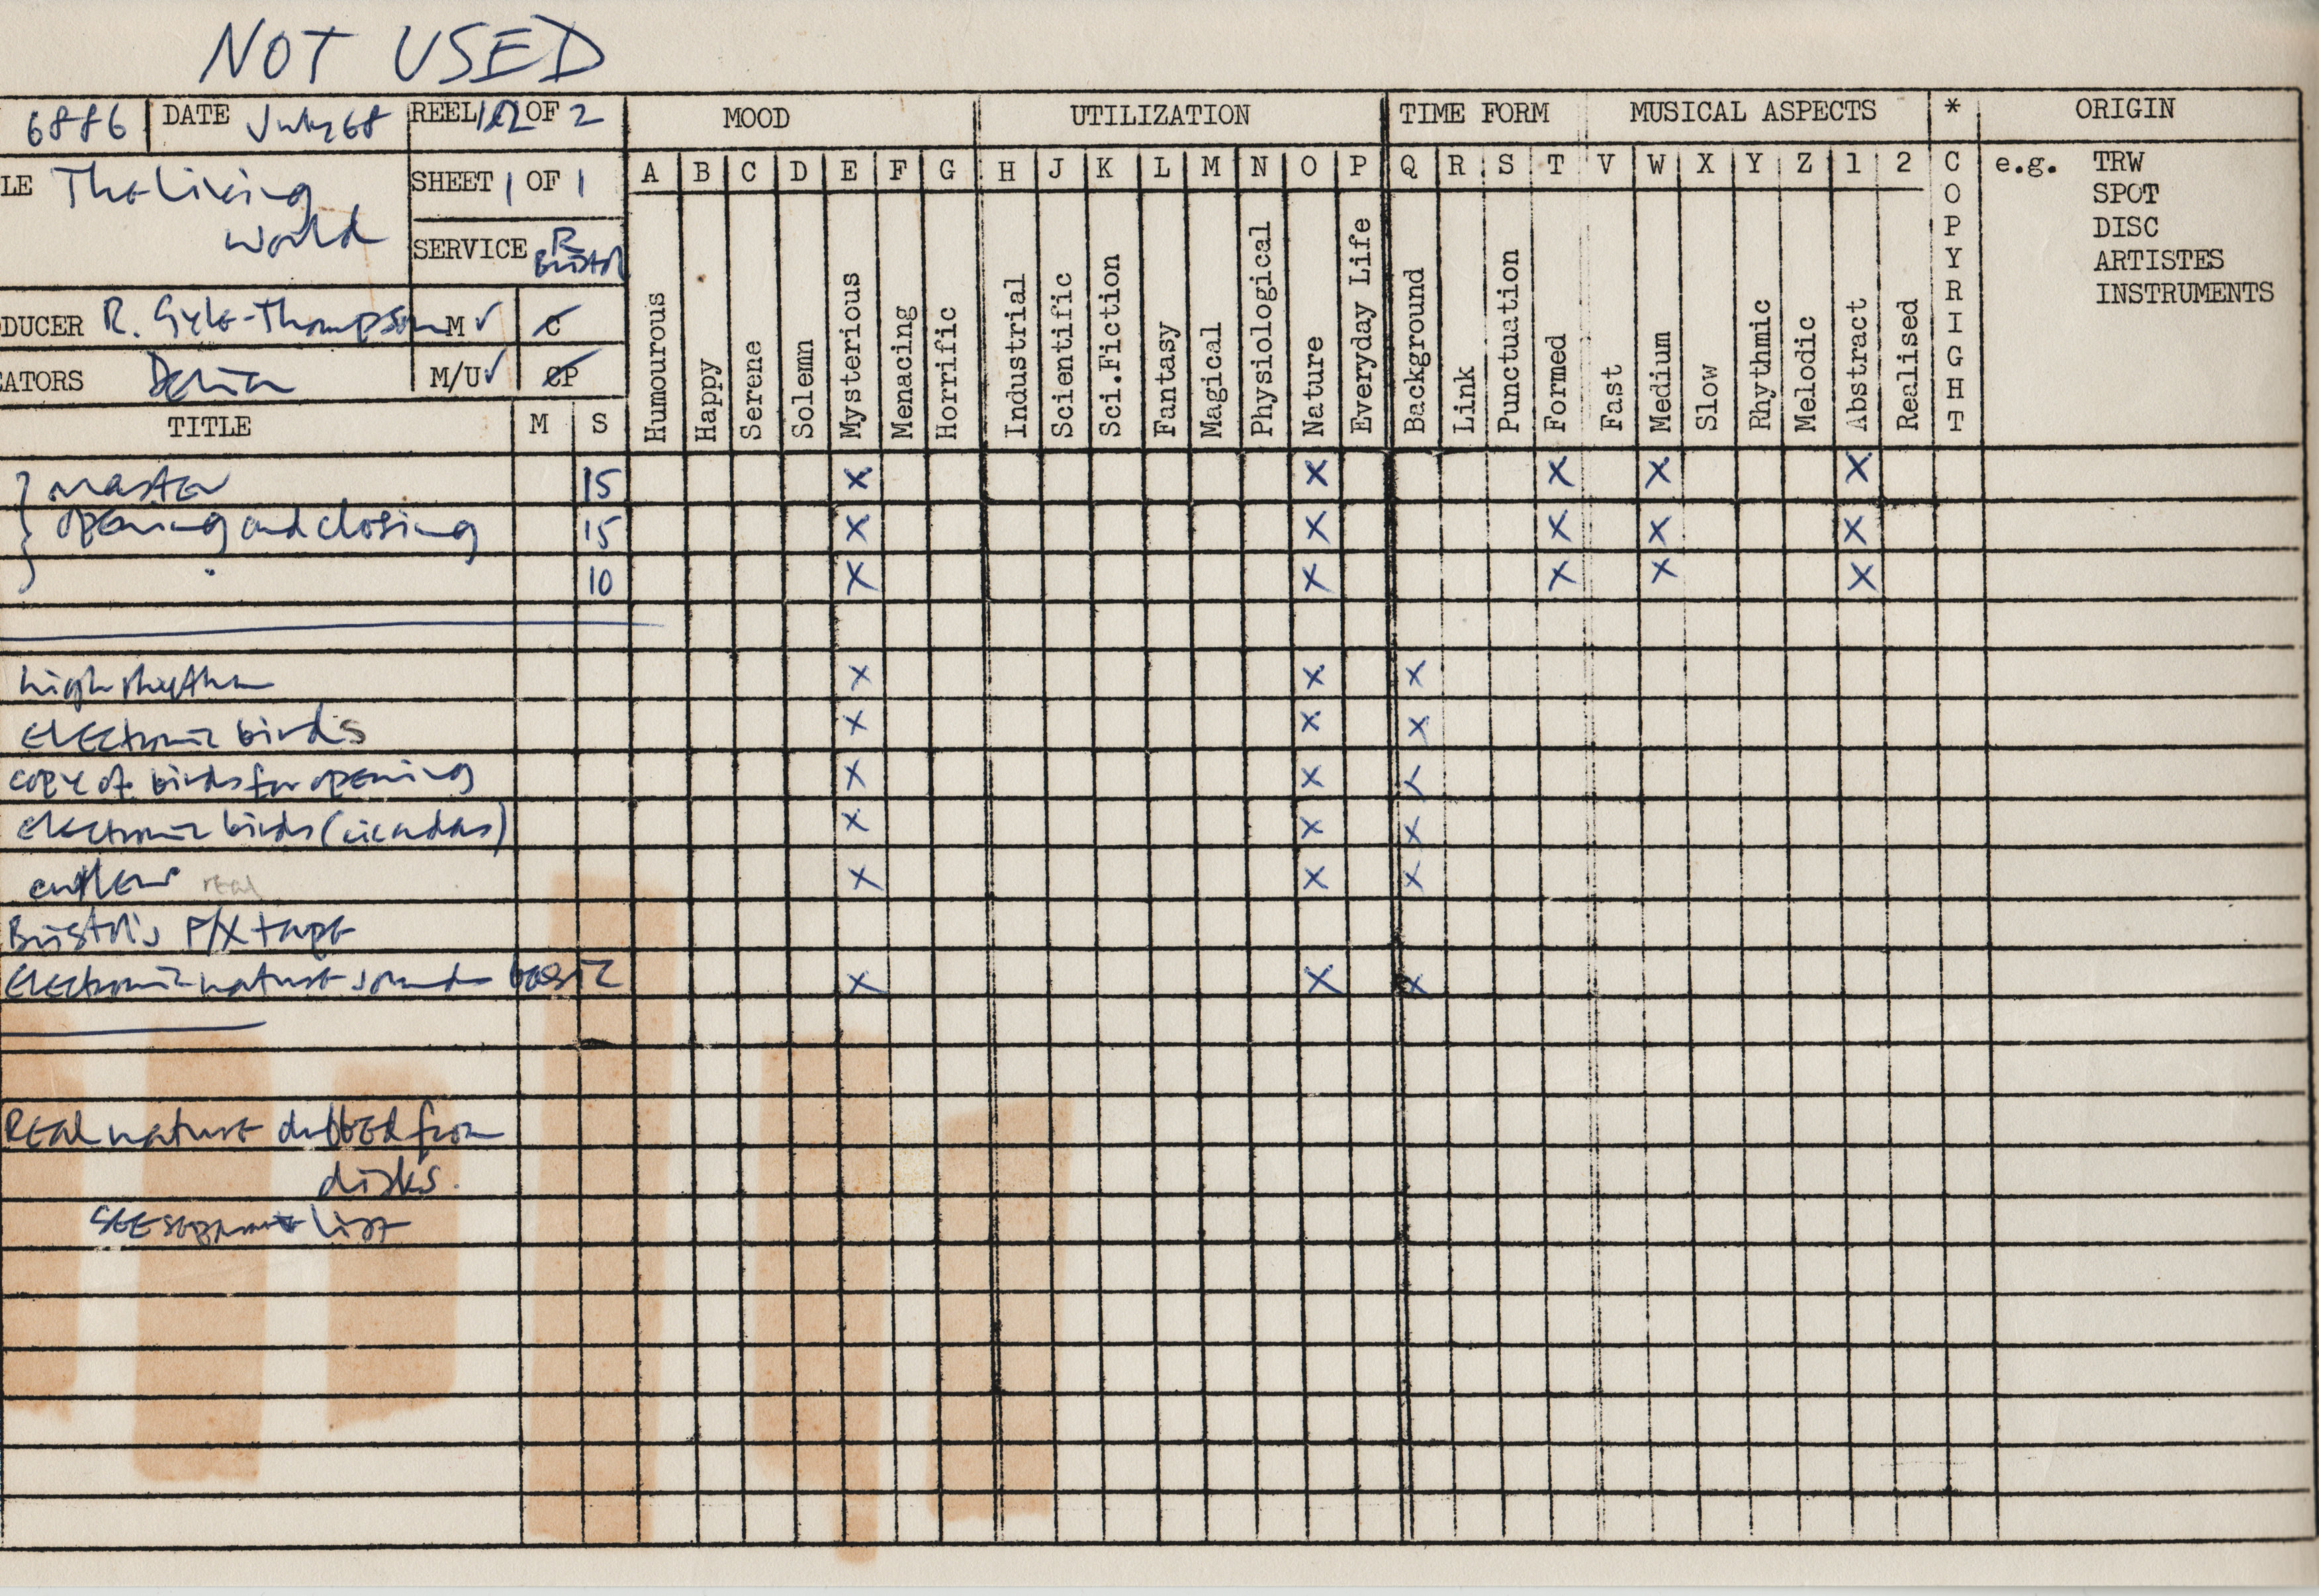 NOT USED
6886 DATE July 68 REEL 1/2 OF 2 MOOD UTILIZATION TIME FORM MUSICAL ASPECTS * ORIGIN
LE The Living World SHEET 1 OF 1 A B C D E F G H J K L M N O P Q R S T V W X Y Z 1 2 COPYRIGHT e.g. TRW
SPOT
DISC
ARTISTES
INSTRUMENTS
SERVICE R Bristol
DUCER R. Gyle-Thompson M ✓ C
EATORS Delia M/U ✓ CP
TITLE M S Humourous Happy Serene Solemn Mysterious Menacing Horrific Industrial Scientific Sci.Fiction Fantasy Magical Physiological Nature Everyday Life Background Link Punctuation Formed Fast Medium Slow Rhythmic Melodic Abstract Realised
} master 15 X X X X X
opening and closing 15 X X X X X
10 X X X X X
high rhythm X X X
electronic birds X X X
copy of birds for opening X X X
electronic birds (cicadas) X X X
real X X X
Bristol's F/X tape
Electronic nature sounds basic X X X
Real nature dubbed from
disks.
SEE separate list